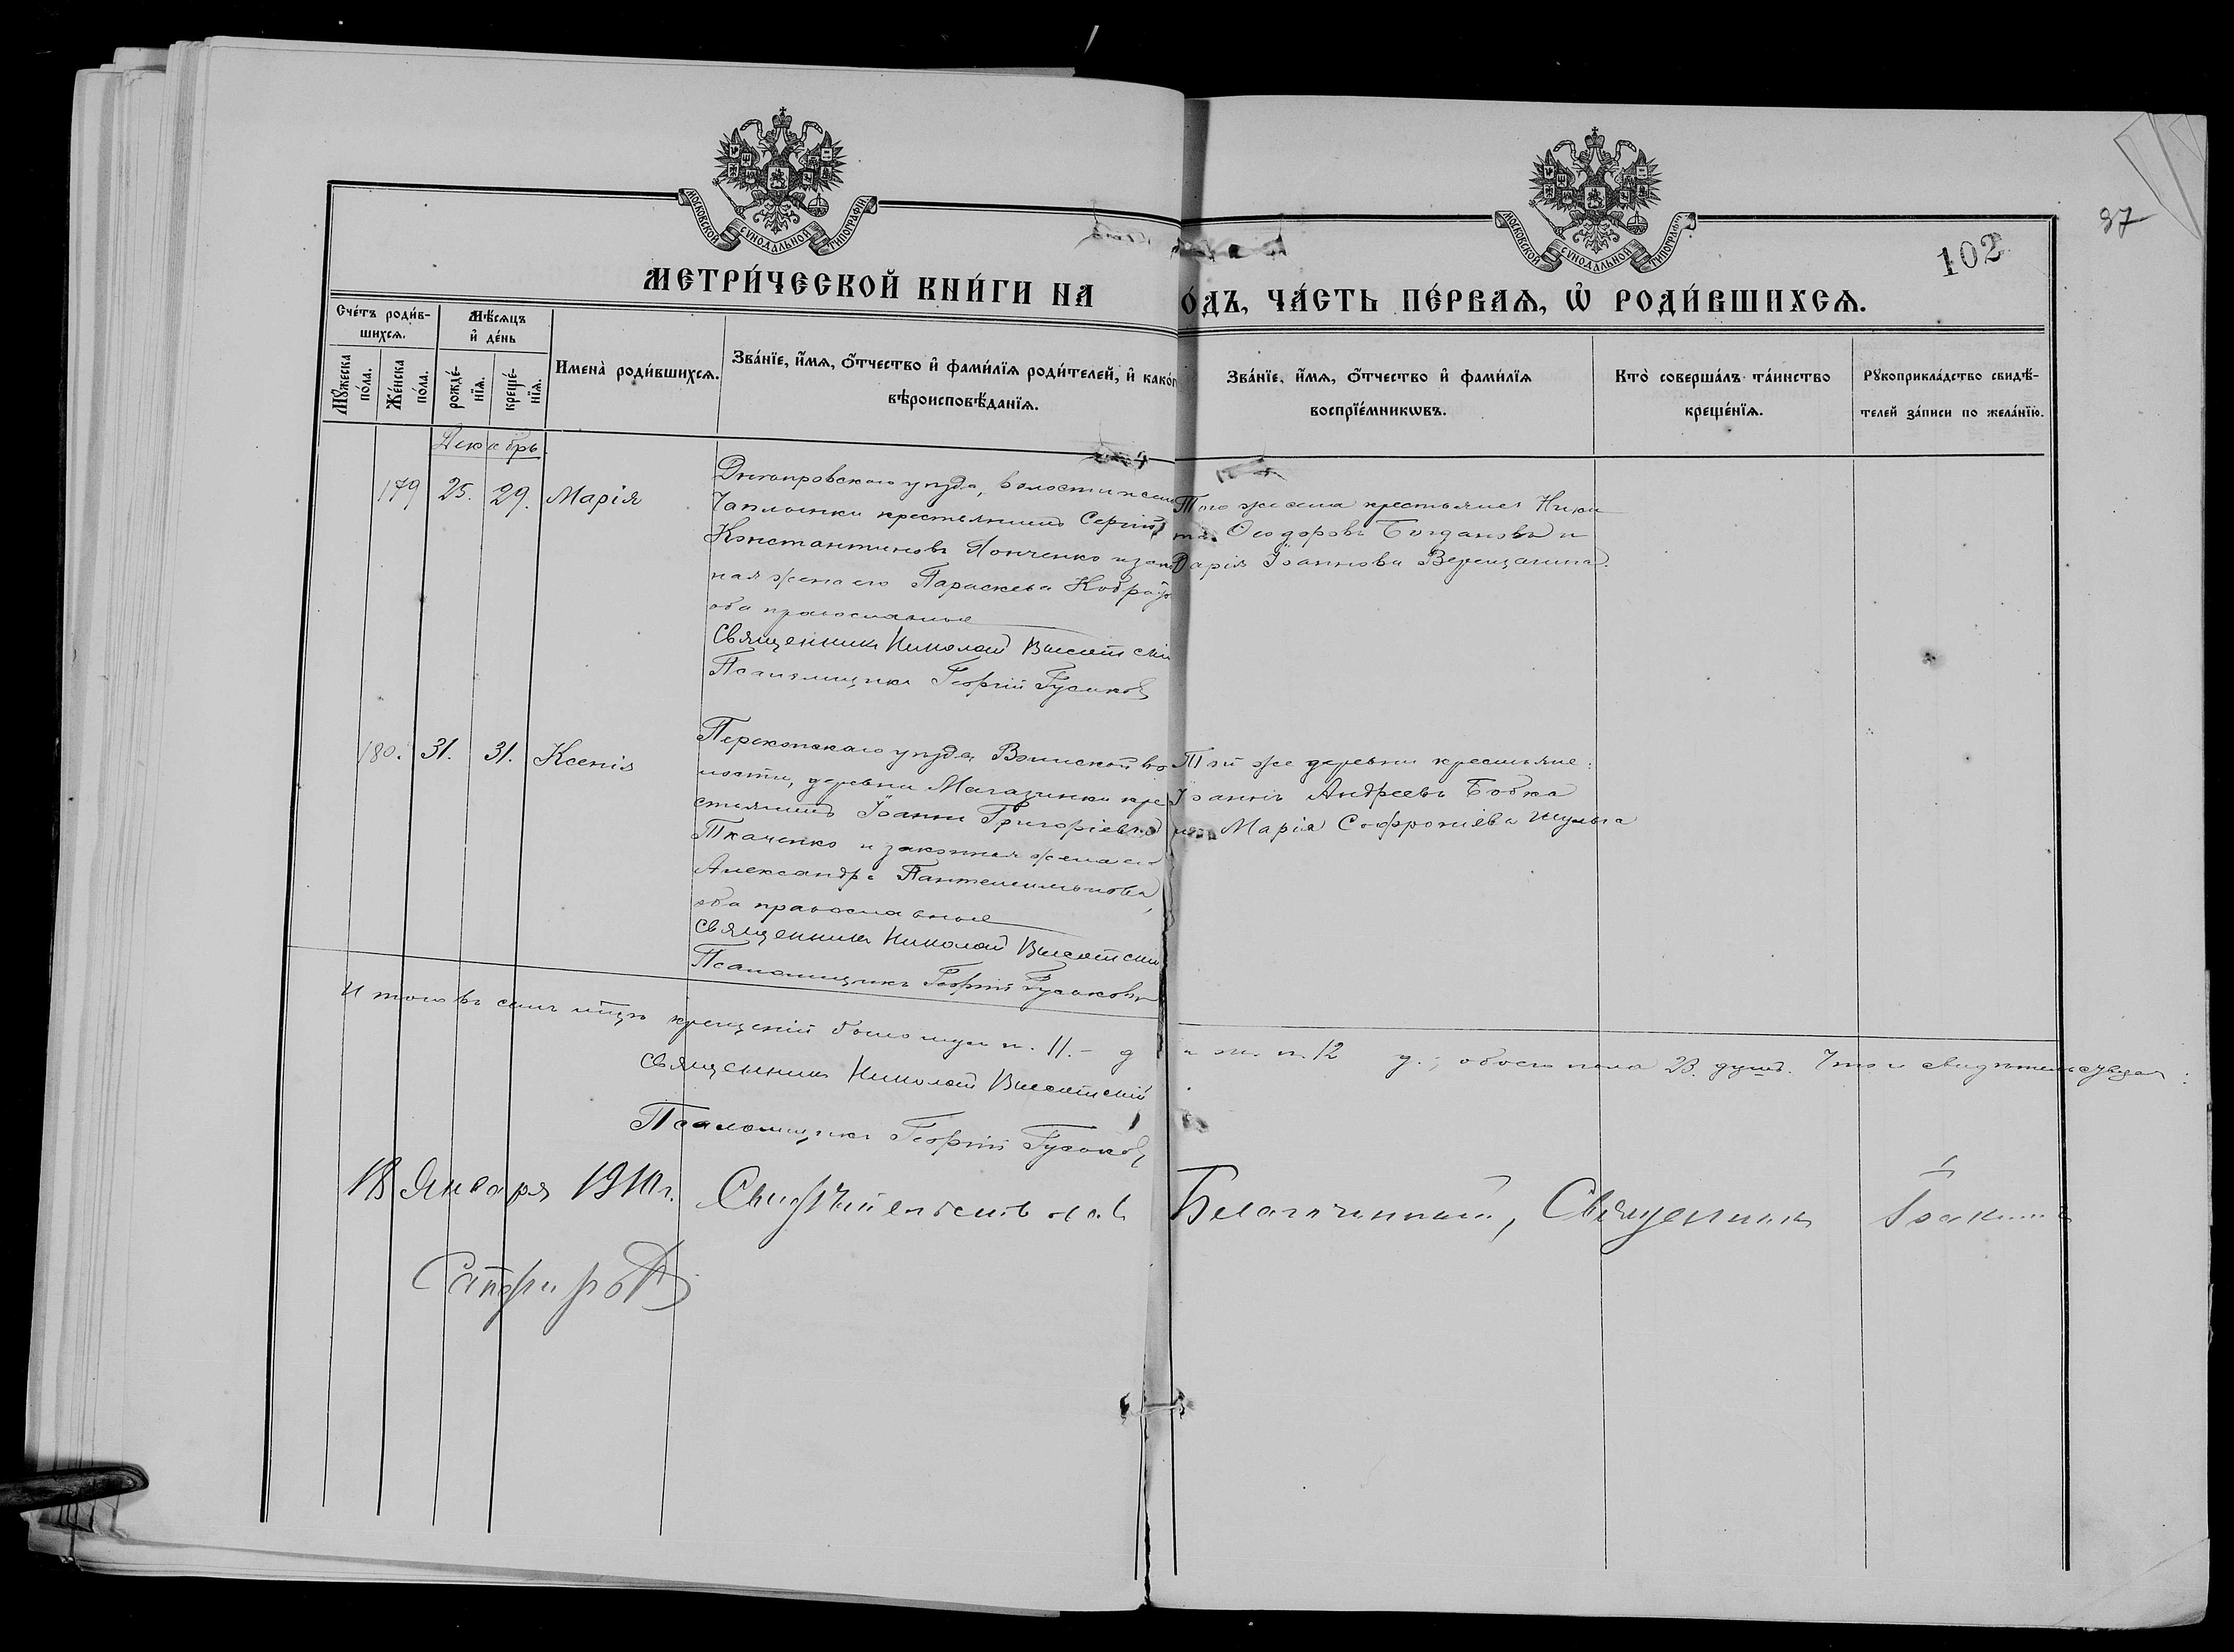 МОСКОВСКОЙ СѴНОДАЛЬНОЙ ТИПОГРАФІИ
МОСКОВСКОЙ СѴНОДАЛЬНОЙ ТИПОГРАФІИ
37
102
МЕТРИ́ЧЕСКОЙ КНИ́ГИ НА
О́ДЪ, ЧА́СТЬ ПЕ́РВАѦ, Ѿ РОДИ́ВШИХСѦ.
Сче́тъ роди́в-
шихсѧ.
Мѣ́сѧцъ
и҆ де́нь
Мꙋ́жеска
по́ла.
Же́нска
по́ла.
рожде́-
нїѧ.
креще́-
нїѧ.
Имена̀ роди́вшихсѧ.
Зва́нїе, и҆́мѧ, ѻ҆́тчество и҆ фами́лїѧ роди́телей, и҆ како́г
вѣроисповѣ́данїѧ.
Зва́нїе, и҆́мѧ, ѻ҆́тчество и҆ фами́лїѧ
воспрїе́мникѡвъ.
Кто̀ соверша́лъ та́инство
креще́нїѧ.
Рꙋкоприкла́дство свидѣ́-
телей за́писи по жела́нїю.
Декабрь.
179 25. 29. Марія
Днѣпровскаго уѣзда, волости и села
Чаплынки крестьянинъ Сергій
Константиновъ Понченко и закон
ная жена его Параскева
оба православные
Священникъ Николай Высотскій
Псаломщикъ Георгій Гусаковъ
Того же села крестьяне: Ники
та Ѳеодоровъ Богдановъ и
Дарія Іоаннова Верещагина.
180. 31. 31. Ксенія
Перекопскаго уѣзда Воинской во
лости, деревни Магазинки кре
стьянинъ Іоаннъ Григоріевъ
Ткаченко и законная жена его
Александра Пантелеимонова,
оба православные
Священникъ Николай Высотскій
Псаломщикъ Георгій Гусаковъ
Той же деревни крестьяне:
Іоаннъ Андреевъ Бобка
и Марія Софроніева Шульга
Итого въ семъ мѣсяцѣ крещеній было муж. п. 11. – д
и ж. п. 12 д.; обоего пола 23. душъ. Что и свидѣтельствуемъ:
Священникъ Николай Высотскій
Псаломщикъ Георгій Гусаковъ
18 Января 1910 г. Свидѣтельствовалъ Благочинный, Священникъ Іоакимъ
Сапфировъ